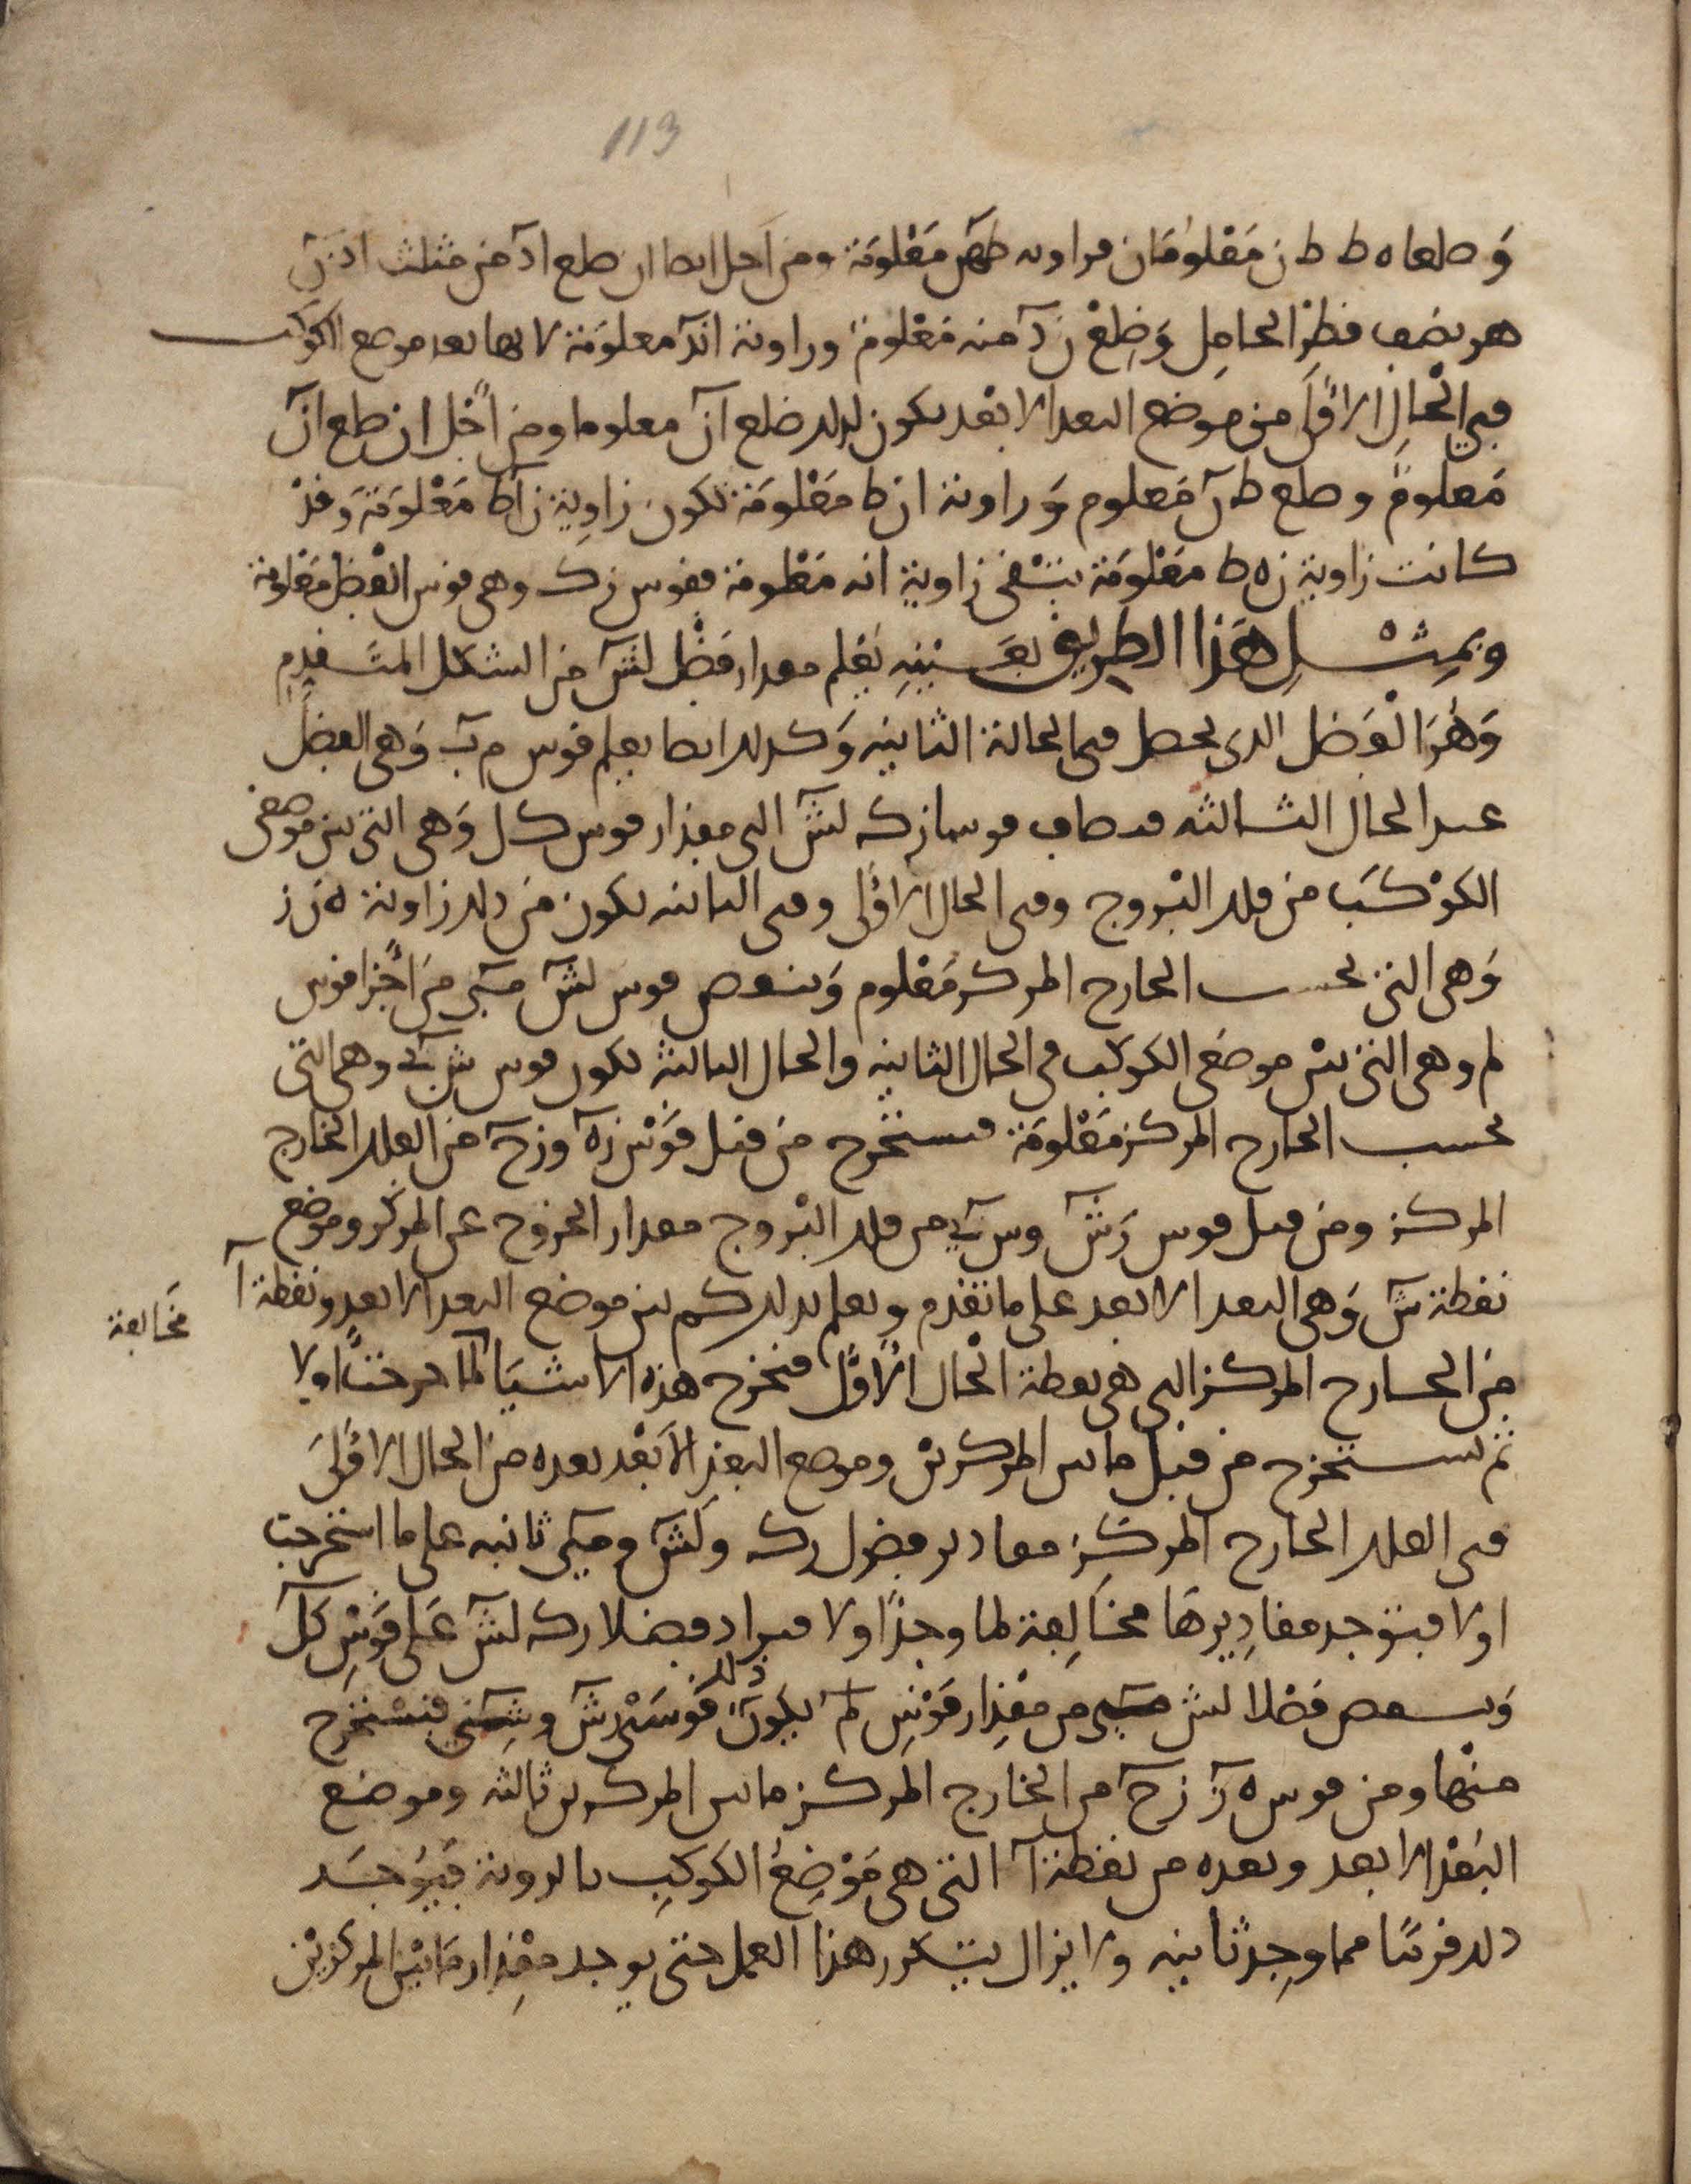 113
وضلعا ه ط ط ن معلومان فزاوية طهن معلومة ومن اجل ايضا ان ضلع اد من مثلث ادن
هو نصف قطر الحامل وضلع ن د منه معلوم وزاوية اند معلومة لانها بعد موضع الكوكب
في الحال الاولى من موضع البعد الابعد يكون لذلك ضلع ان معلوما ومن اجل ان ضلع ان
معلوم وضلع ط ن معلوم وزاوية ان ط معلومة تكون زاوية ن ا ط معلومة وقد
كانت زاوية ن ه ط معلومة تبقى زاوية انه معلومة فقوس زك وهي قوس الفضل معلومة
وبمثل هذا الطريق بعينه يعلم مقدار فضل لش من الشكل المتقدم
وهذا الفضل الذي يحصل في الحالة الثانية وكذلك ايضا يعلم قوس م ب وهي الفضل
عند الحال الثالثة فيضاف قوسا زك لش الى مقدار قوس كل وهي التي بين موضعي
الكوكب من فلك البروج وفي الحال الاولى وفي الثانية يكون من ذلك زاوية
وهي التي بحسب الخارج المركز معلوم وينقص قوس لش من اخر قوس
لم وهي التي بين موضعي الكوكب في الحال الثانية والحال الثالثة يكون قوس وهي التي
بحسب الخارج المركز معلومة فيستخرج من قبل قوس زه وزح من الفلك الخارج
المركز ومن قبل قوس رش من فلك البروج مقدار الخروج عن المركز وموضع
نقطة ش وهي البعد الابعد على ما تقدم ويعلم بذلك كم بين موضع البعد الابعد ونقطة ا
من الخارج المركز التي هي نقطة الحال الاول فتخرج هذه الاشيا لما خرجت اولا
مخالفة
ثم يستخرج من قبل ما بين المركزين وموضع البعد الابعد بعده من الحال الاولى
في الفلك الخارج المركز مقادير فضول زك ولش ومي ثانية على ما استخرجت
اولا فتوجد مقاديرها مخالفة لما وجد اولا فيزاد فضلا زك لش على قوس كل
وينقص فضلا لش من مقدار قوس لم يكون ذلك قوسي رش فيستخرج
منها ومن قوس ه ز زح من الخارج المركز ما بين المركزين ثالثة وموضع
البعد الابعد وبعده من نقطة ا التي هي موضع الكوكب بالروية فيوجد
ذلك قريبا مما وجد ثانية ولا يزال يتكرر هذا العمل حتى يوجد مقدار ما بين المركزين